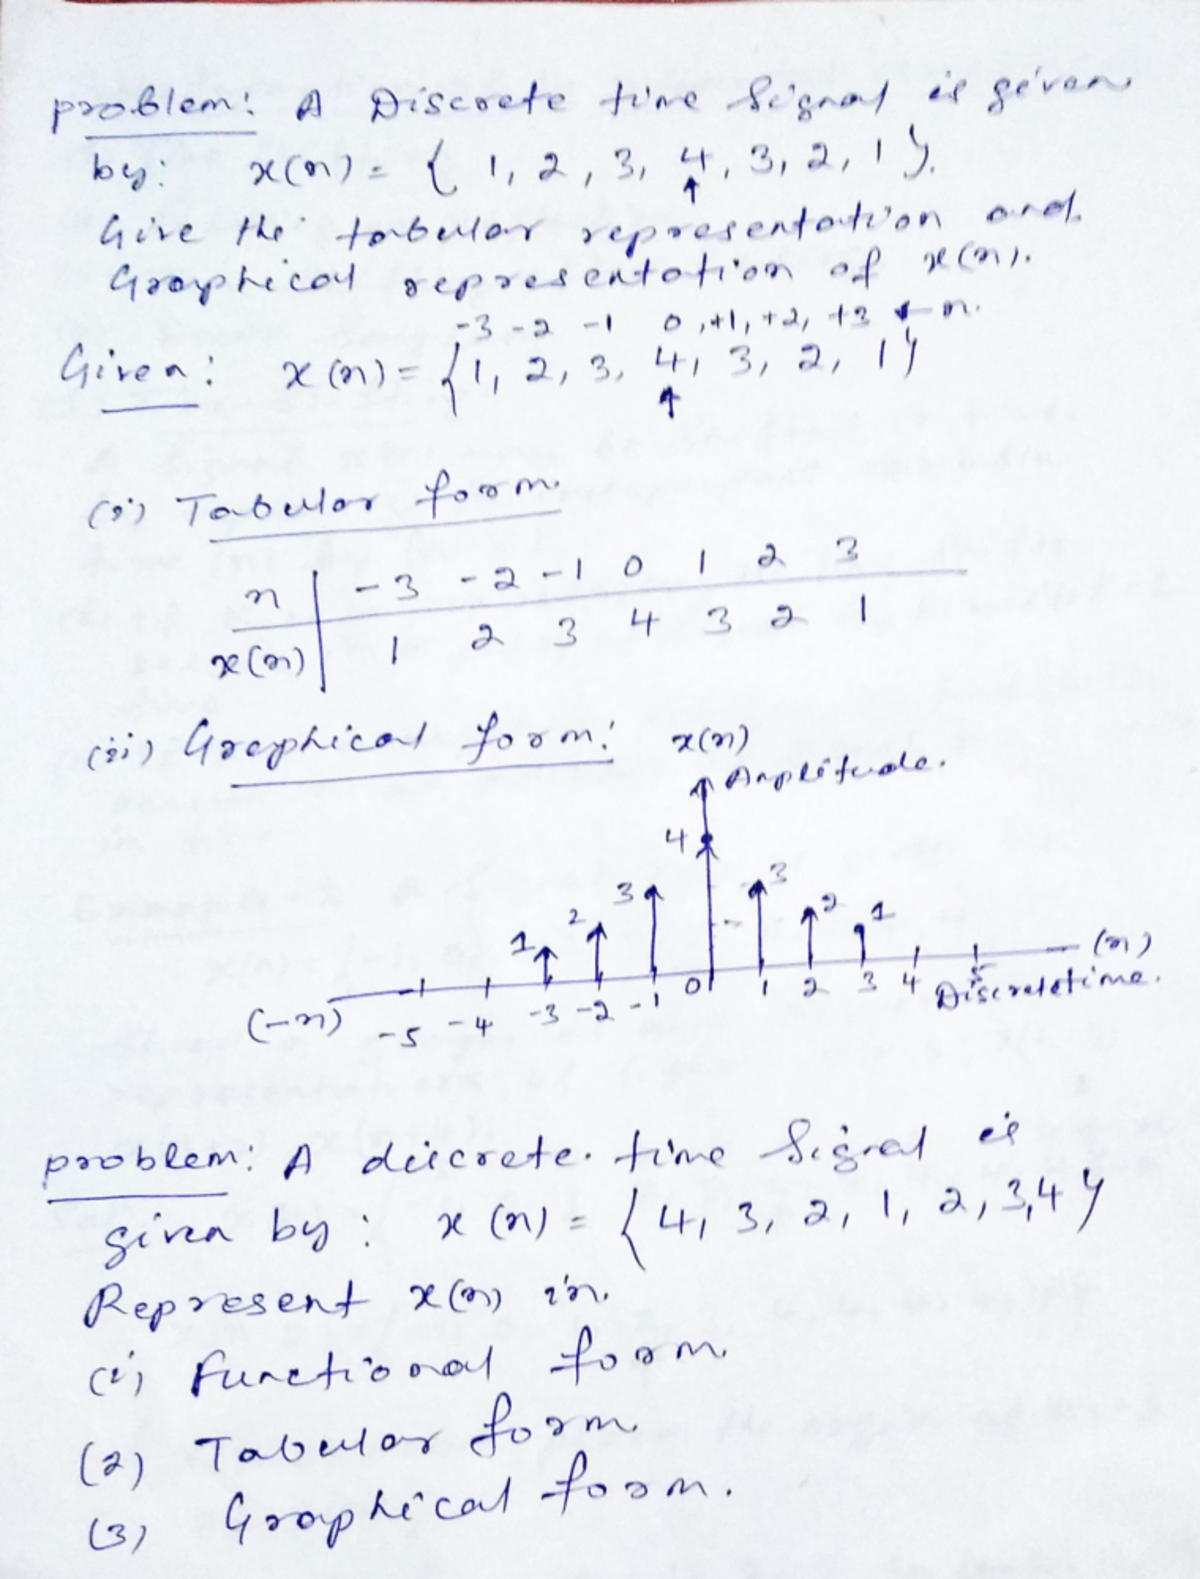 problem: A Discrete time Signal is given
by: x(n) = { 1, 2, 3, 4, 3, 2, 1 }.
↑
Give the tabular representation and
Graphical representation of x(n).
-3 -2 -1 0, +1, +2, +3 ← n.
Given: x(n) = { 1, 2, 3, 4, 3, 2, 1 }
↑
(i) Tabular form.
n | -3 -2 -1 0 1 2 3
x(n) | 1 2 3 4 3 2 1
(ii) Graphical form: x(n)
Amplitude.
4
3 3
2 2
1 1
(n)
(-n) -5 -4 -3 -2 -1 0 1 2 3 4 5
Discrete time.
problem: A discrete. time Signal is
given by: x(n) = { 4, 3, 2, 1, 2, 3, 4 }
Represent x(n) in.
(i) Functional form.
(2) Tabular form.
(3) Graphical form.